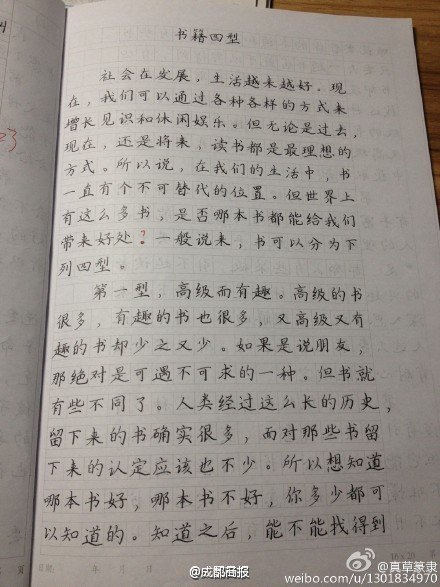 书籍四型
社会在发展，生活越来越好。现
在，我们可以通过各种各样的方式来
增长见识和休闲娱乐。但无论是过去，
现在，还是将来，读书都是最理想的
方式。所以说，在我们的生活中，书
一直有个不可替代的位置。但世界上
有这么多书，是否哪本书都能给我们
带来好处？一般说来，书可以分为下
列四型。
第一型，高级而有趣。高级的书
很多，有趣的书也很多，又高级又有
趣的书却少之又少。如果是说朋友，
那绝对是可遇不可求的一种。但书就
有些不同了。人类经过这么长的历史，
留下来的书确实很多，而对那些书留
下来的认定应该也不少。所以想知道
哪本书好，哪本书不好，你多少都可
以知道的。知道之后，能不能找得到
日期： 年 月 日
16×20
@成都商报
@真草篆隶
weibo.com/u/1301834970